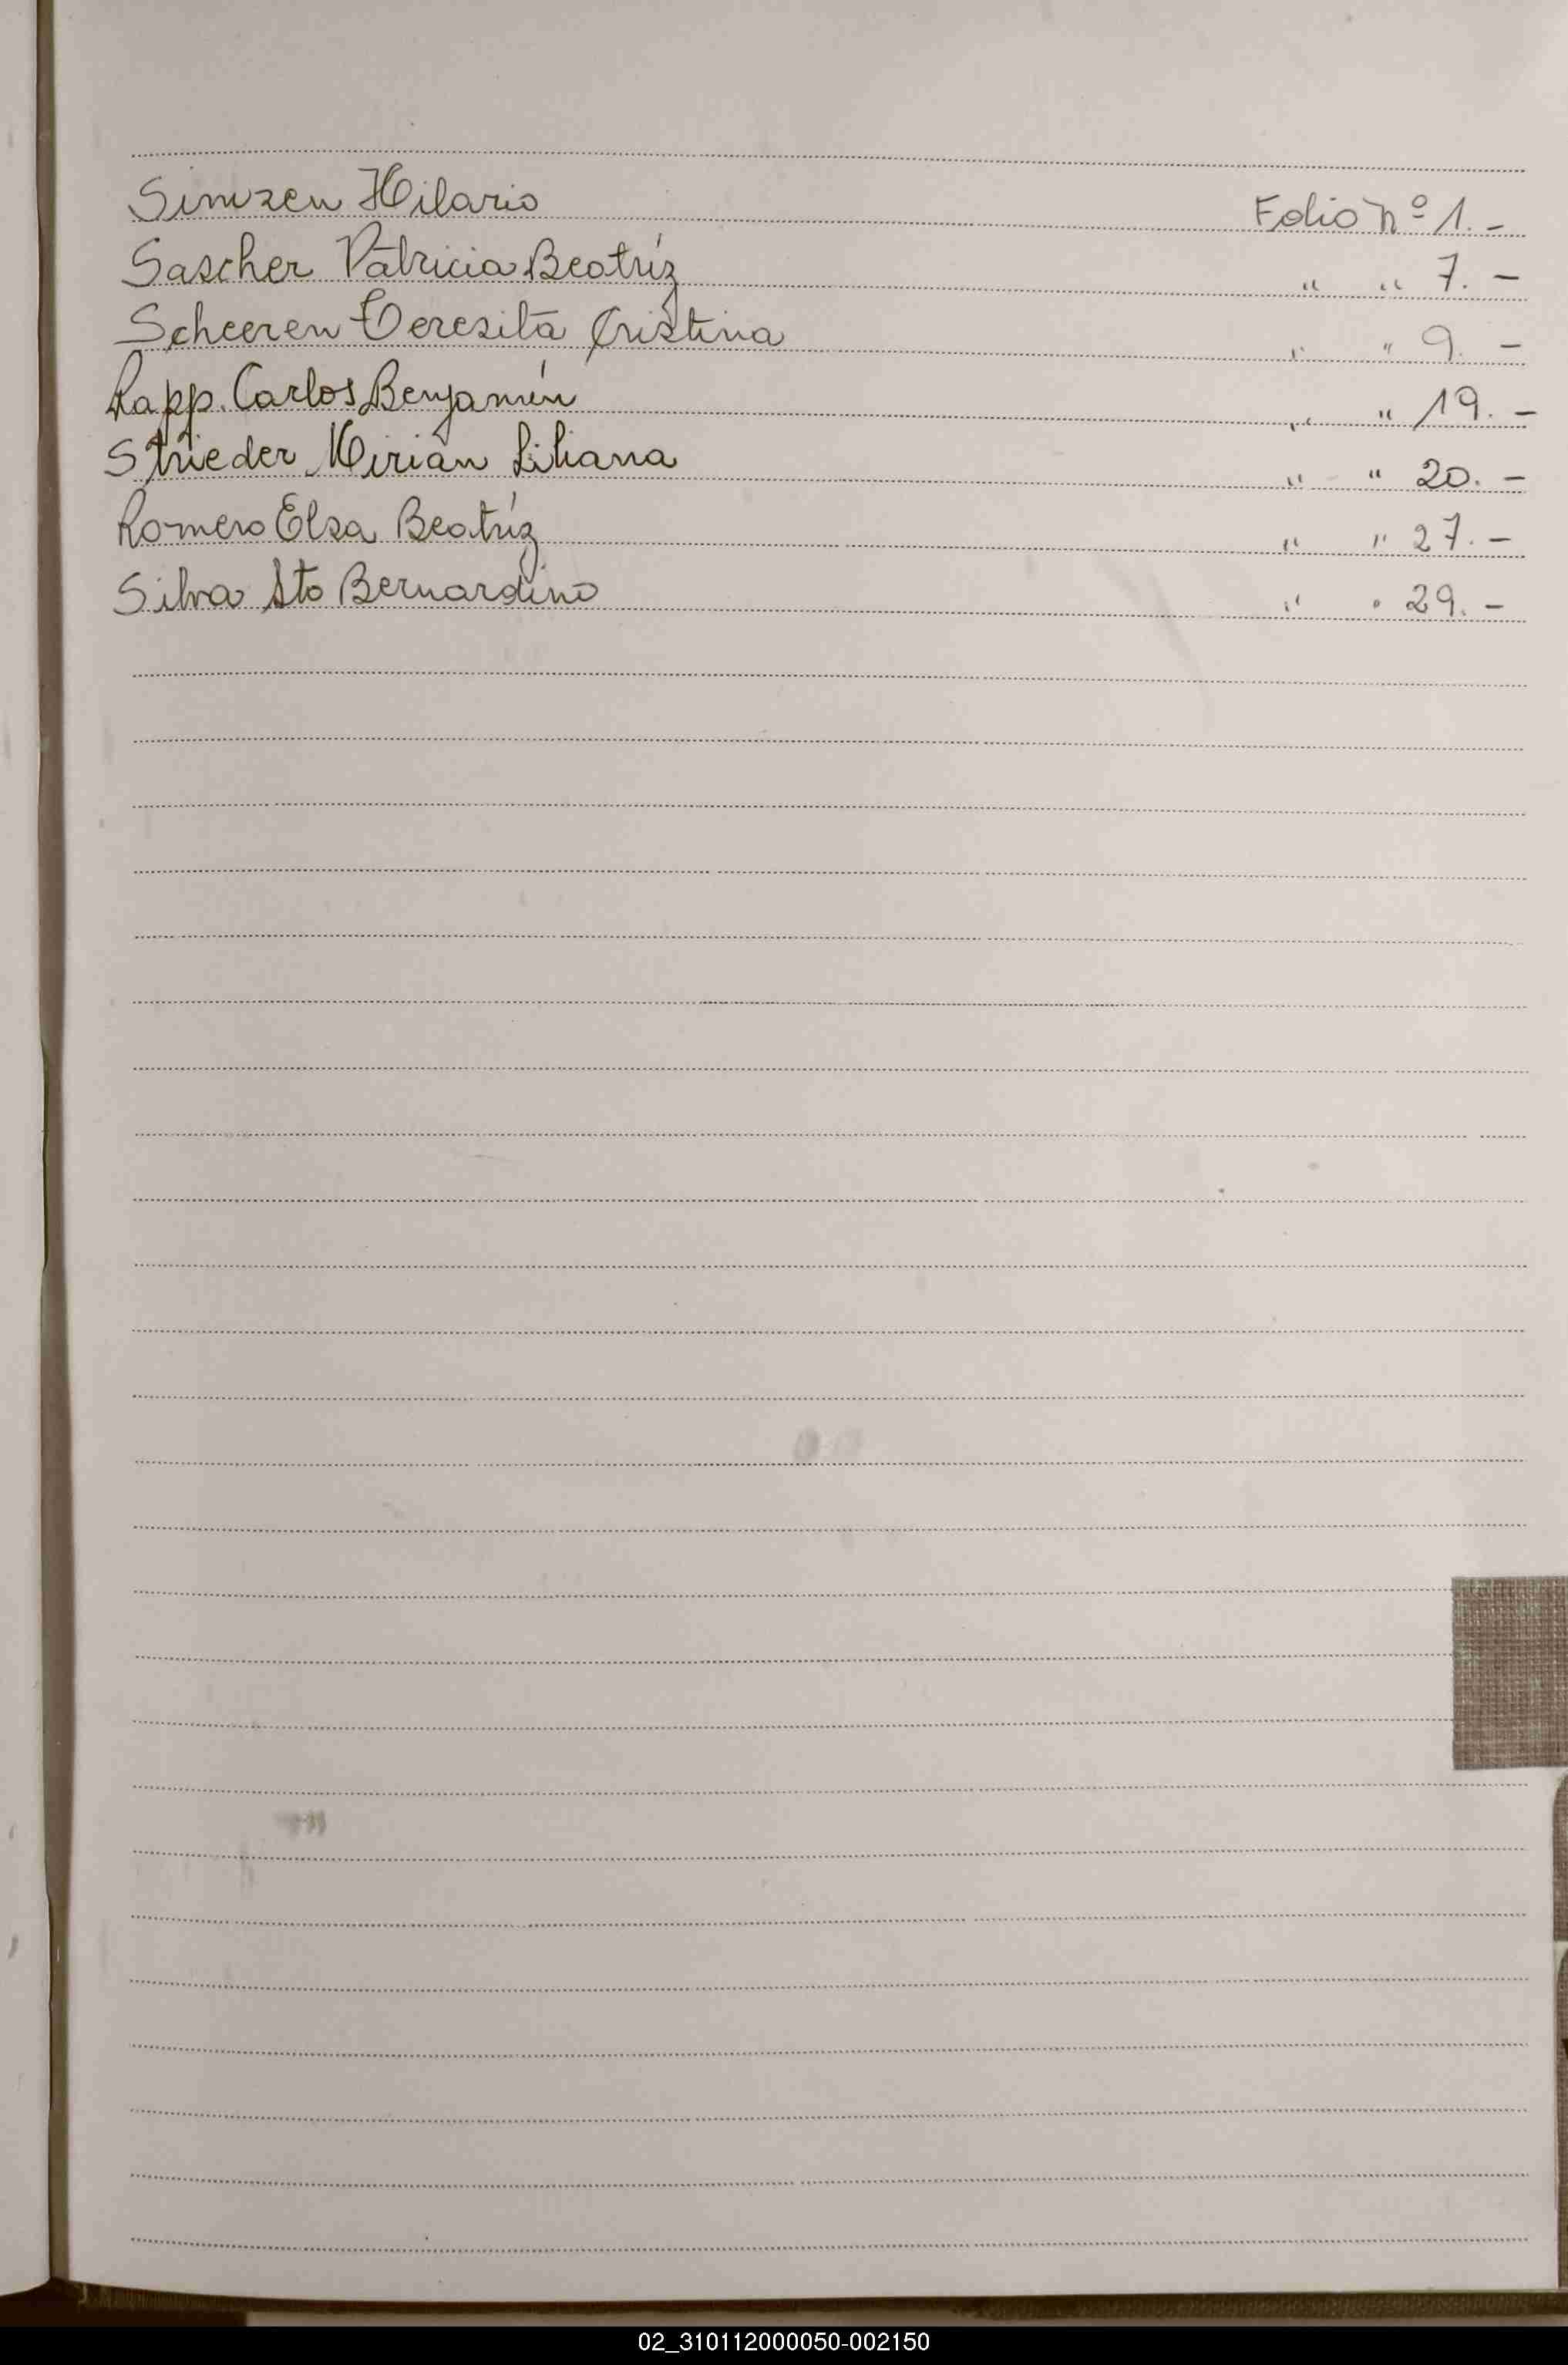 Simzen Hilario Folio Nº 1.-
Sascher Patricia Beatríz " " 7.-
Scheeren Teresita Cristina " " 9.-
Rapp. Carlos Benjamín " " 19.-
Strieder Mirian Liliana " " 20.-
Romero Elsa Beatríz " " 27.-
Silva Sto Bernardino " " 29.-
02_310112000050-002150